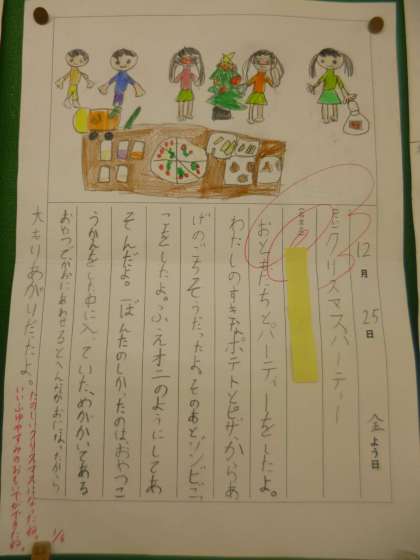 12月 25日 金よう日
クリスマスパーティー
おともだちとパーティーをしたよ。
わたしのすきなポテトとピザ、からあ
げのごちそうだったよ。そのあと、ゾンビご
っこをしたよ。ふえオニのようにしてあ
そんだよ。1ばんたのしかったのは、おやつこ
うかんをした中に入っていた、めがかいてある
おやつで、かおにあわせるとへんながおになったから
大もりあがりだったよ。
たのしいクリスマスになったね。
いいふゆやすみのおもいでができたね。
1/6